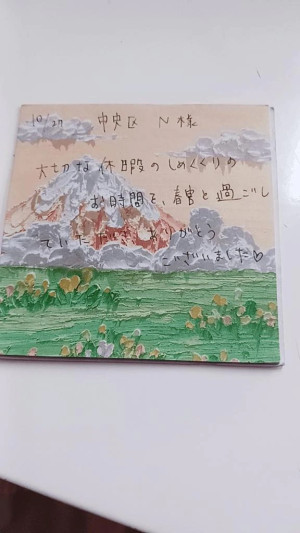 10/27 中央区 N様
大切な休暇のしめくくりの
お時間を、春宮と過ごし
ていただき ありがとう
ございました♡